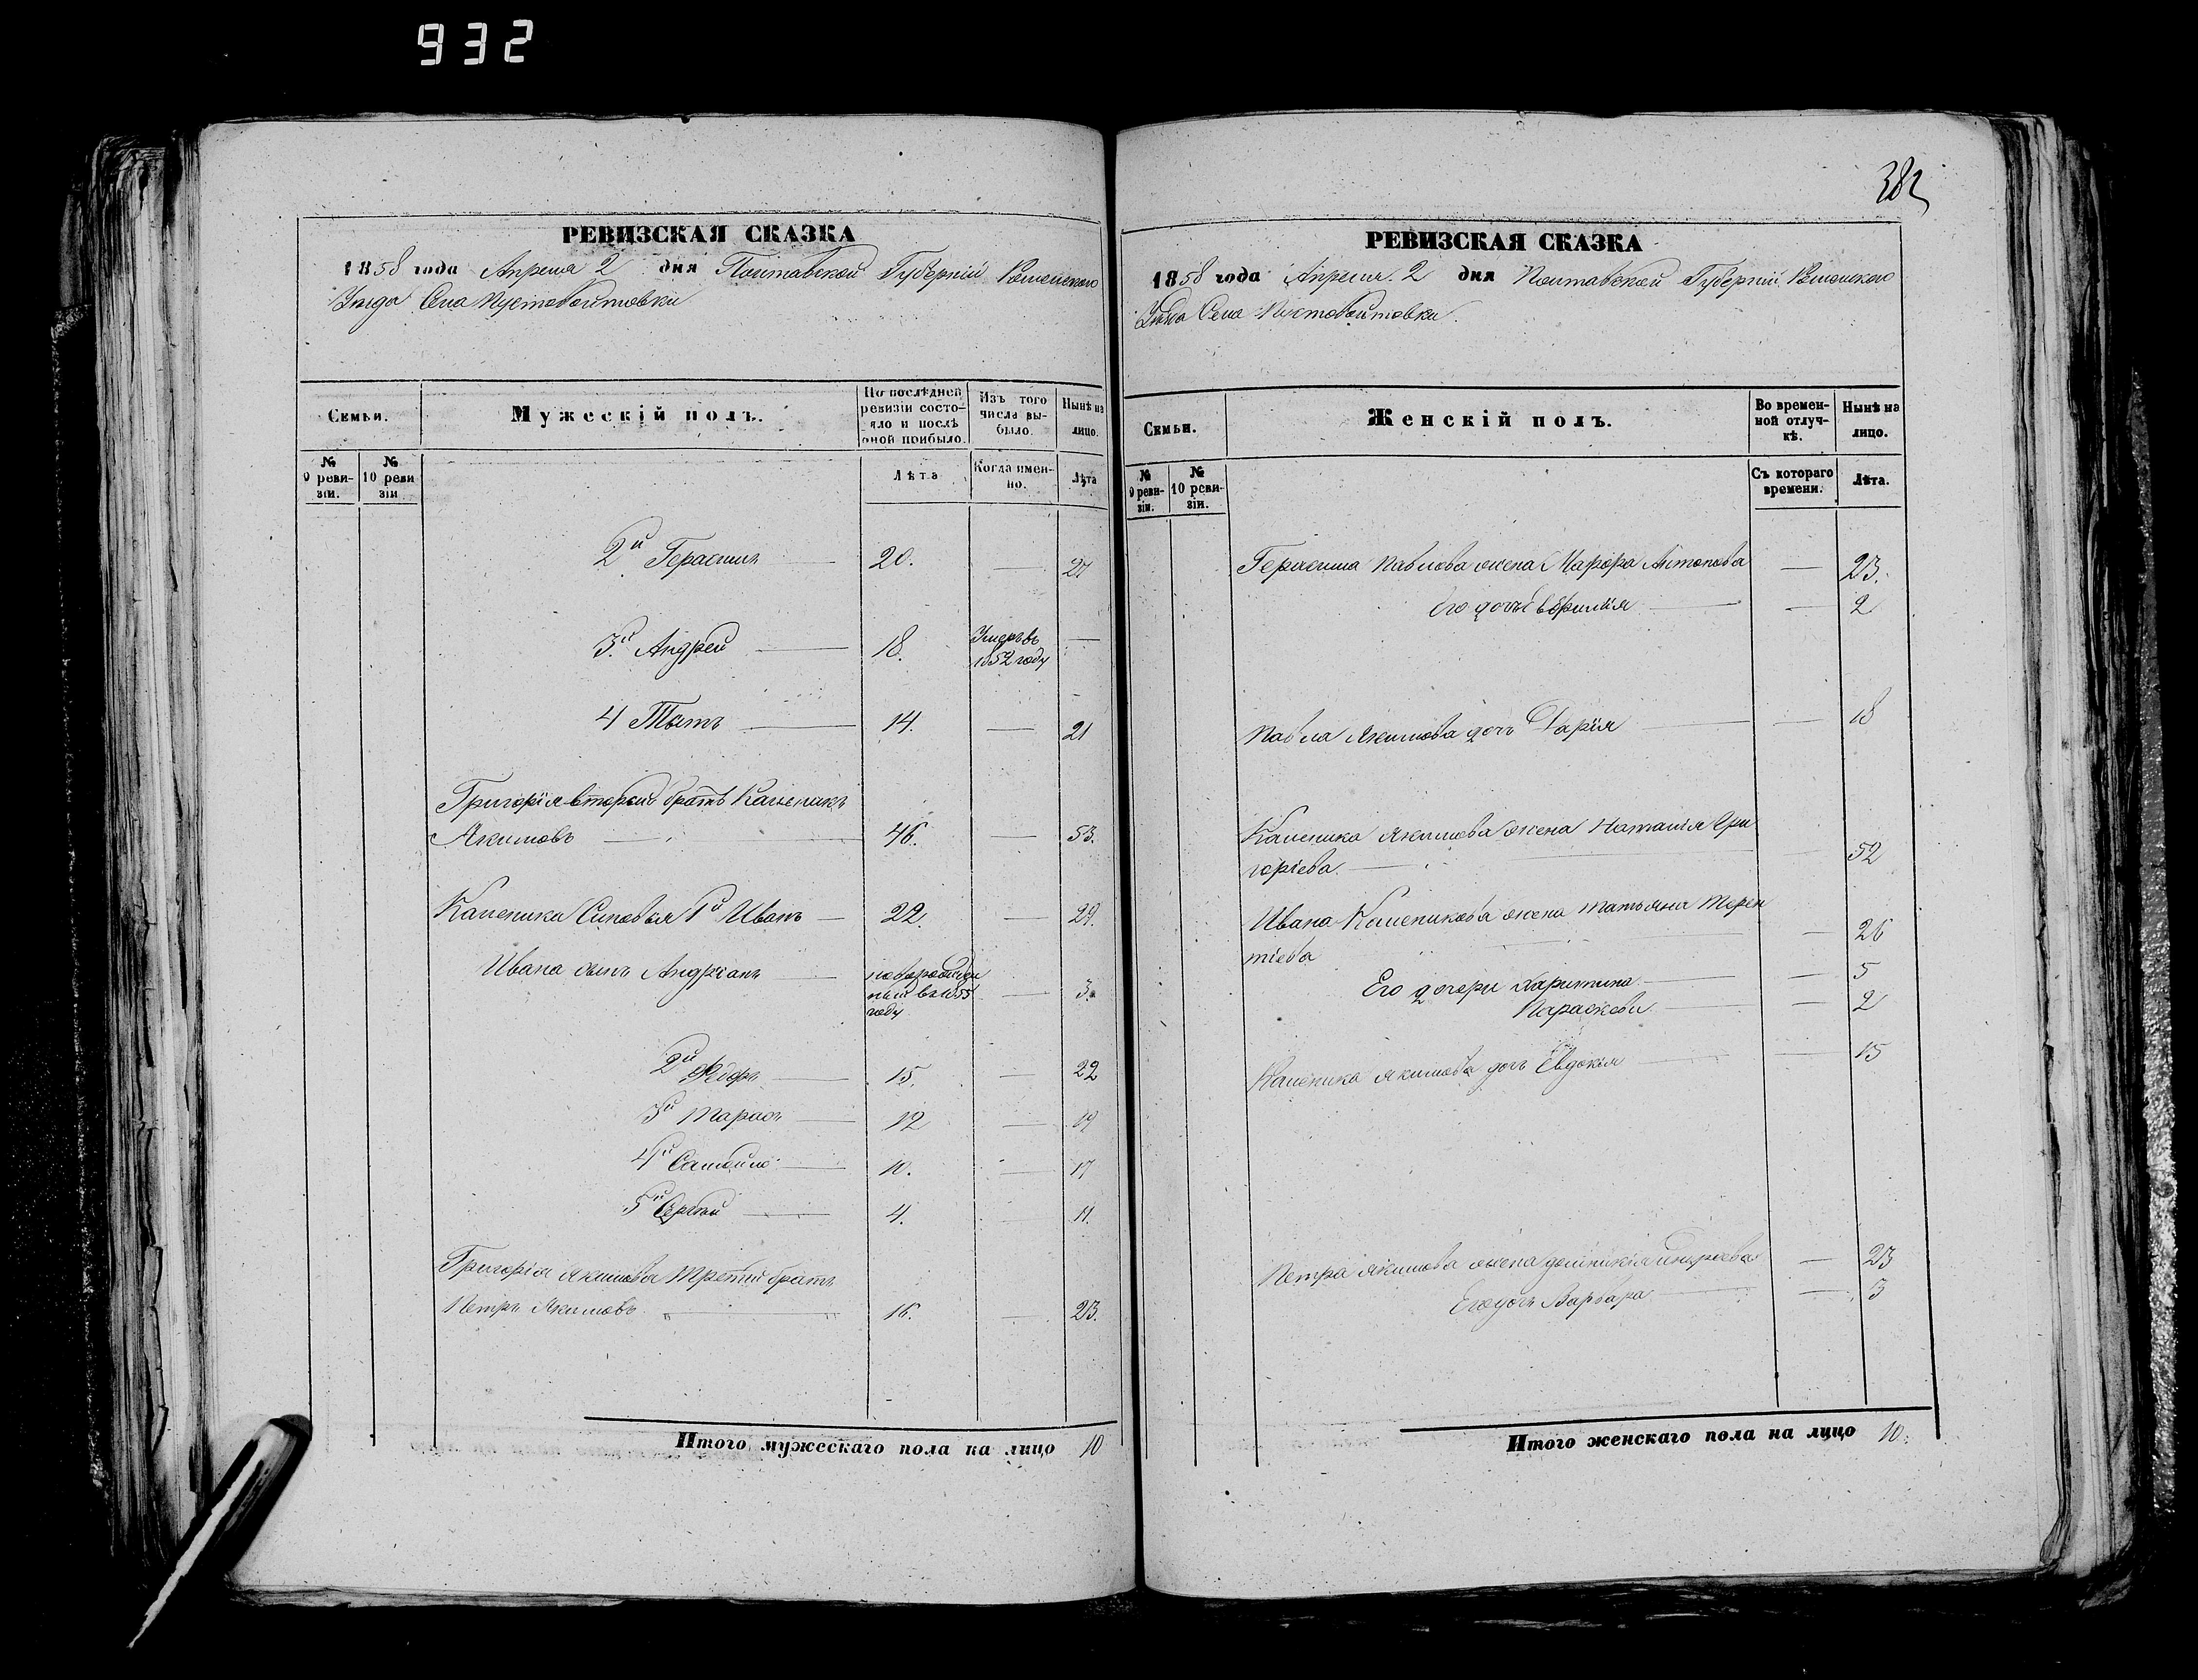 932
РЕВИЗСКАЯ СКАЗКА
1858 года Апреля 2 дня Полтавской Губерніи Роменского
Уезда Села Пустовойтовки
Семьи.
Мужескій полъ.
По послѣдней ревизіи состояло и послѣ оной прибыло.
Изъ того числа выбыло.
Нынѣ на лицо.
№ 9 ревизіи.
№ 10 ревизіи
Лѣта
Когда именно.
Лѣта
2й Герасимъ 20. — 27
3й Андрей 18. Умеръ въ 1852 году —
4 Титъ 14. — 21
Григорія второй братъ Каленикъ
Якимовъ — 46. — 53.
Каленика Сыновья 1й Иванъ — 22. — 29.
Ивана сынъ Андріанъ — новорожденный въ 1855 году — 3.
2й Федоръ — 15. — 22
3й Тарасъ — 12 — 19
4й Самойло — 10. — 17
5й Сергѣй — 4. — 11.
Григорія Якимова Третий братъ
Петръ Якимовъ — 16. — 23.
Итого мужескаго пола на лицо 10
382
РЕВИЗСКАЯ СКАЗКА
1858 года Апреля 2 дня Полтавской Губерніи Роменского
Уезда Села Пустовойтовки.
Семьи.
Женскій полъ.
Во временной отлучкѣ.
Нынѣ на лицо.
№ 9 ревизіи.
№ 10 ревизіи.
Съ котораго времени.
Лѣта.
Герасима Павлова жена Марфа Антонова — 23.
Его дочь Ефимія — — 2
Павла Якимова дочь Дарія — — 18
Каленика Якимова жена Наталія Гри
горіева. — 52
Ивана Каленикова жена Татьяна Терен
тіева — 26
Его дочери Харитина — — 5
Параскева — — 2
Каленика Якимова дочь Евдокія — — 15
Петра Якимова жена Домникія — 23
Его дочь Варвара — — 3
Итого женскаго пола на лицо 10.